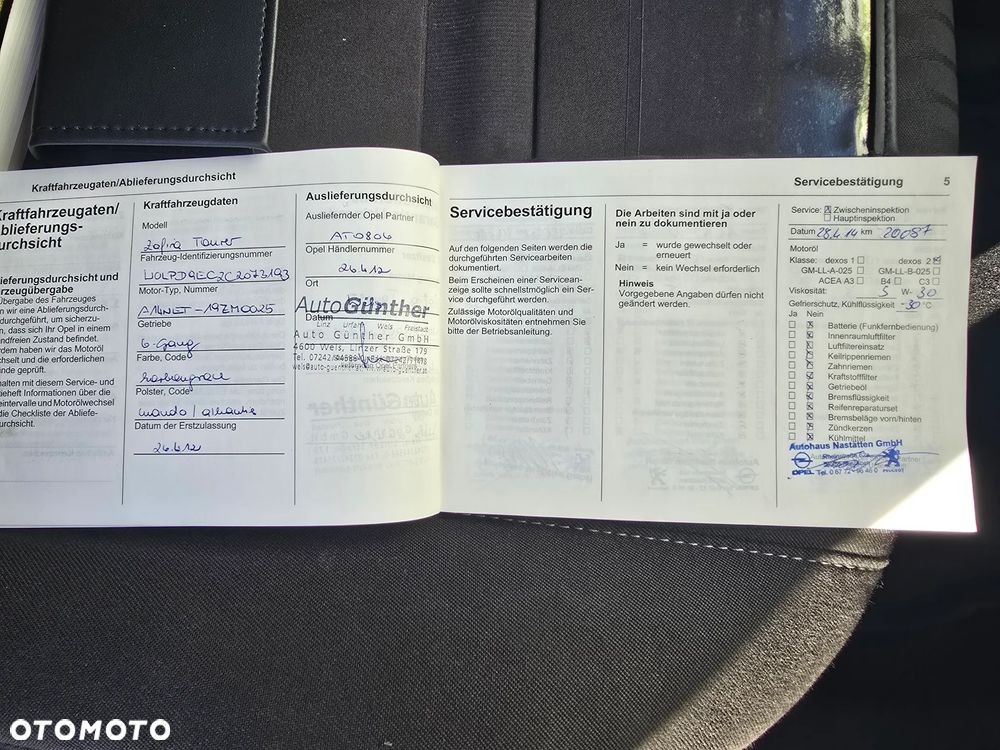 Kraftfahrzeugaten/Ablieferungsdurchsicht
Kraftfahrzeugaten/
blieferungs-
urchsicht
ieferungsdurchsicht und
rzeugübergabe
Übergabe des Fahrzeugs
n wir eine Ablieferungsdurch-
durchgeführt, um sicherzu-
n, dass sich Ihr Opel in einem
ndfreien Zustand befindet.
rdem haben wir das Motoröl
chselt und die erforderlichen
nde geprüft.
halten mit diesem Service- und
tieheft Informationen über die
eintervalle und Motorölwechsel
die Checkliste der Abliefe-
urchsicht.
Kraftfahrzeugdaten
Modell
Zafira Tourer
Fahrzeug-Identifizierungsnummer
W0LPD9EC2C2073193
Motor-Typ. Nummer
A14NET-19ZM0025
Getriebe
6-Gang
Farbe, Code
Polster, Code
mondo / atlantis
Datum der Erstzulassung
26.6.12
Auslieferungsdurchsicht
Ausliefernder Opel Partner
AT0806
Opel Händlernummer
26.6.12
Ort
AutoGünther
Datum
Linz Urfahr Wels Freistadt
Auto Günther GmbH
4600 Wels, Linzer Straße 179
Servicebestätigung 5
Servicebestätigung
Auf den folgenden Seiten werden die
durchgeführten Servicearbeiten
dokumentiert.
Beim Erscheinen einer Servicean-
zeige sollte schnellstmöglich ein Ser-
vice durchgeführt werden.
Zulässige Motorölqualitäten und
Motorölviskositäten entnehmen Sie
bitte der Betriebsanleitung.
Die Arbeiten sind mit ja oder
nein zu dokumentieren
Ja = wurde gewechselt oder
erneuert
Nein = kein Wechsel erforderlich
Hinweis
Vorgegebene Angaben dürfen nicht
geändert werden.
Service: Zwischeninspektion
Hauptinspektion
Datum 28.4.14 km 20087
Motoröl
Klasse: dexos 1 dexos 2
GM-LL-A-025 GM-LL-B-025
ACEA A3 B4 C3
Viskosität: 5 W- 30
Gefrierschutz, Kühlflüssigkeit -30 °C
Ja Nein
Batterie (Funkfernbedienung)
Innenraumluftfilter
Luftfiltereinsatz
Keilrippenriemen
Zahnriemen
Kraftstofffilter
Getriebeöl
Bremsflüssigkeit
Reifenreparaturset
Bremsbeläge vorn/hinten
Zündkerzen
Kühlmittel
Autohaus Nastätten GmbH
OPEL Tel. 0 67 72 - 96 46 0 PEUGEOT
OTOMOTO